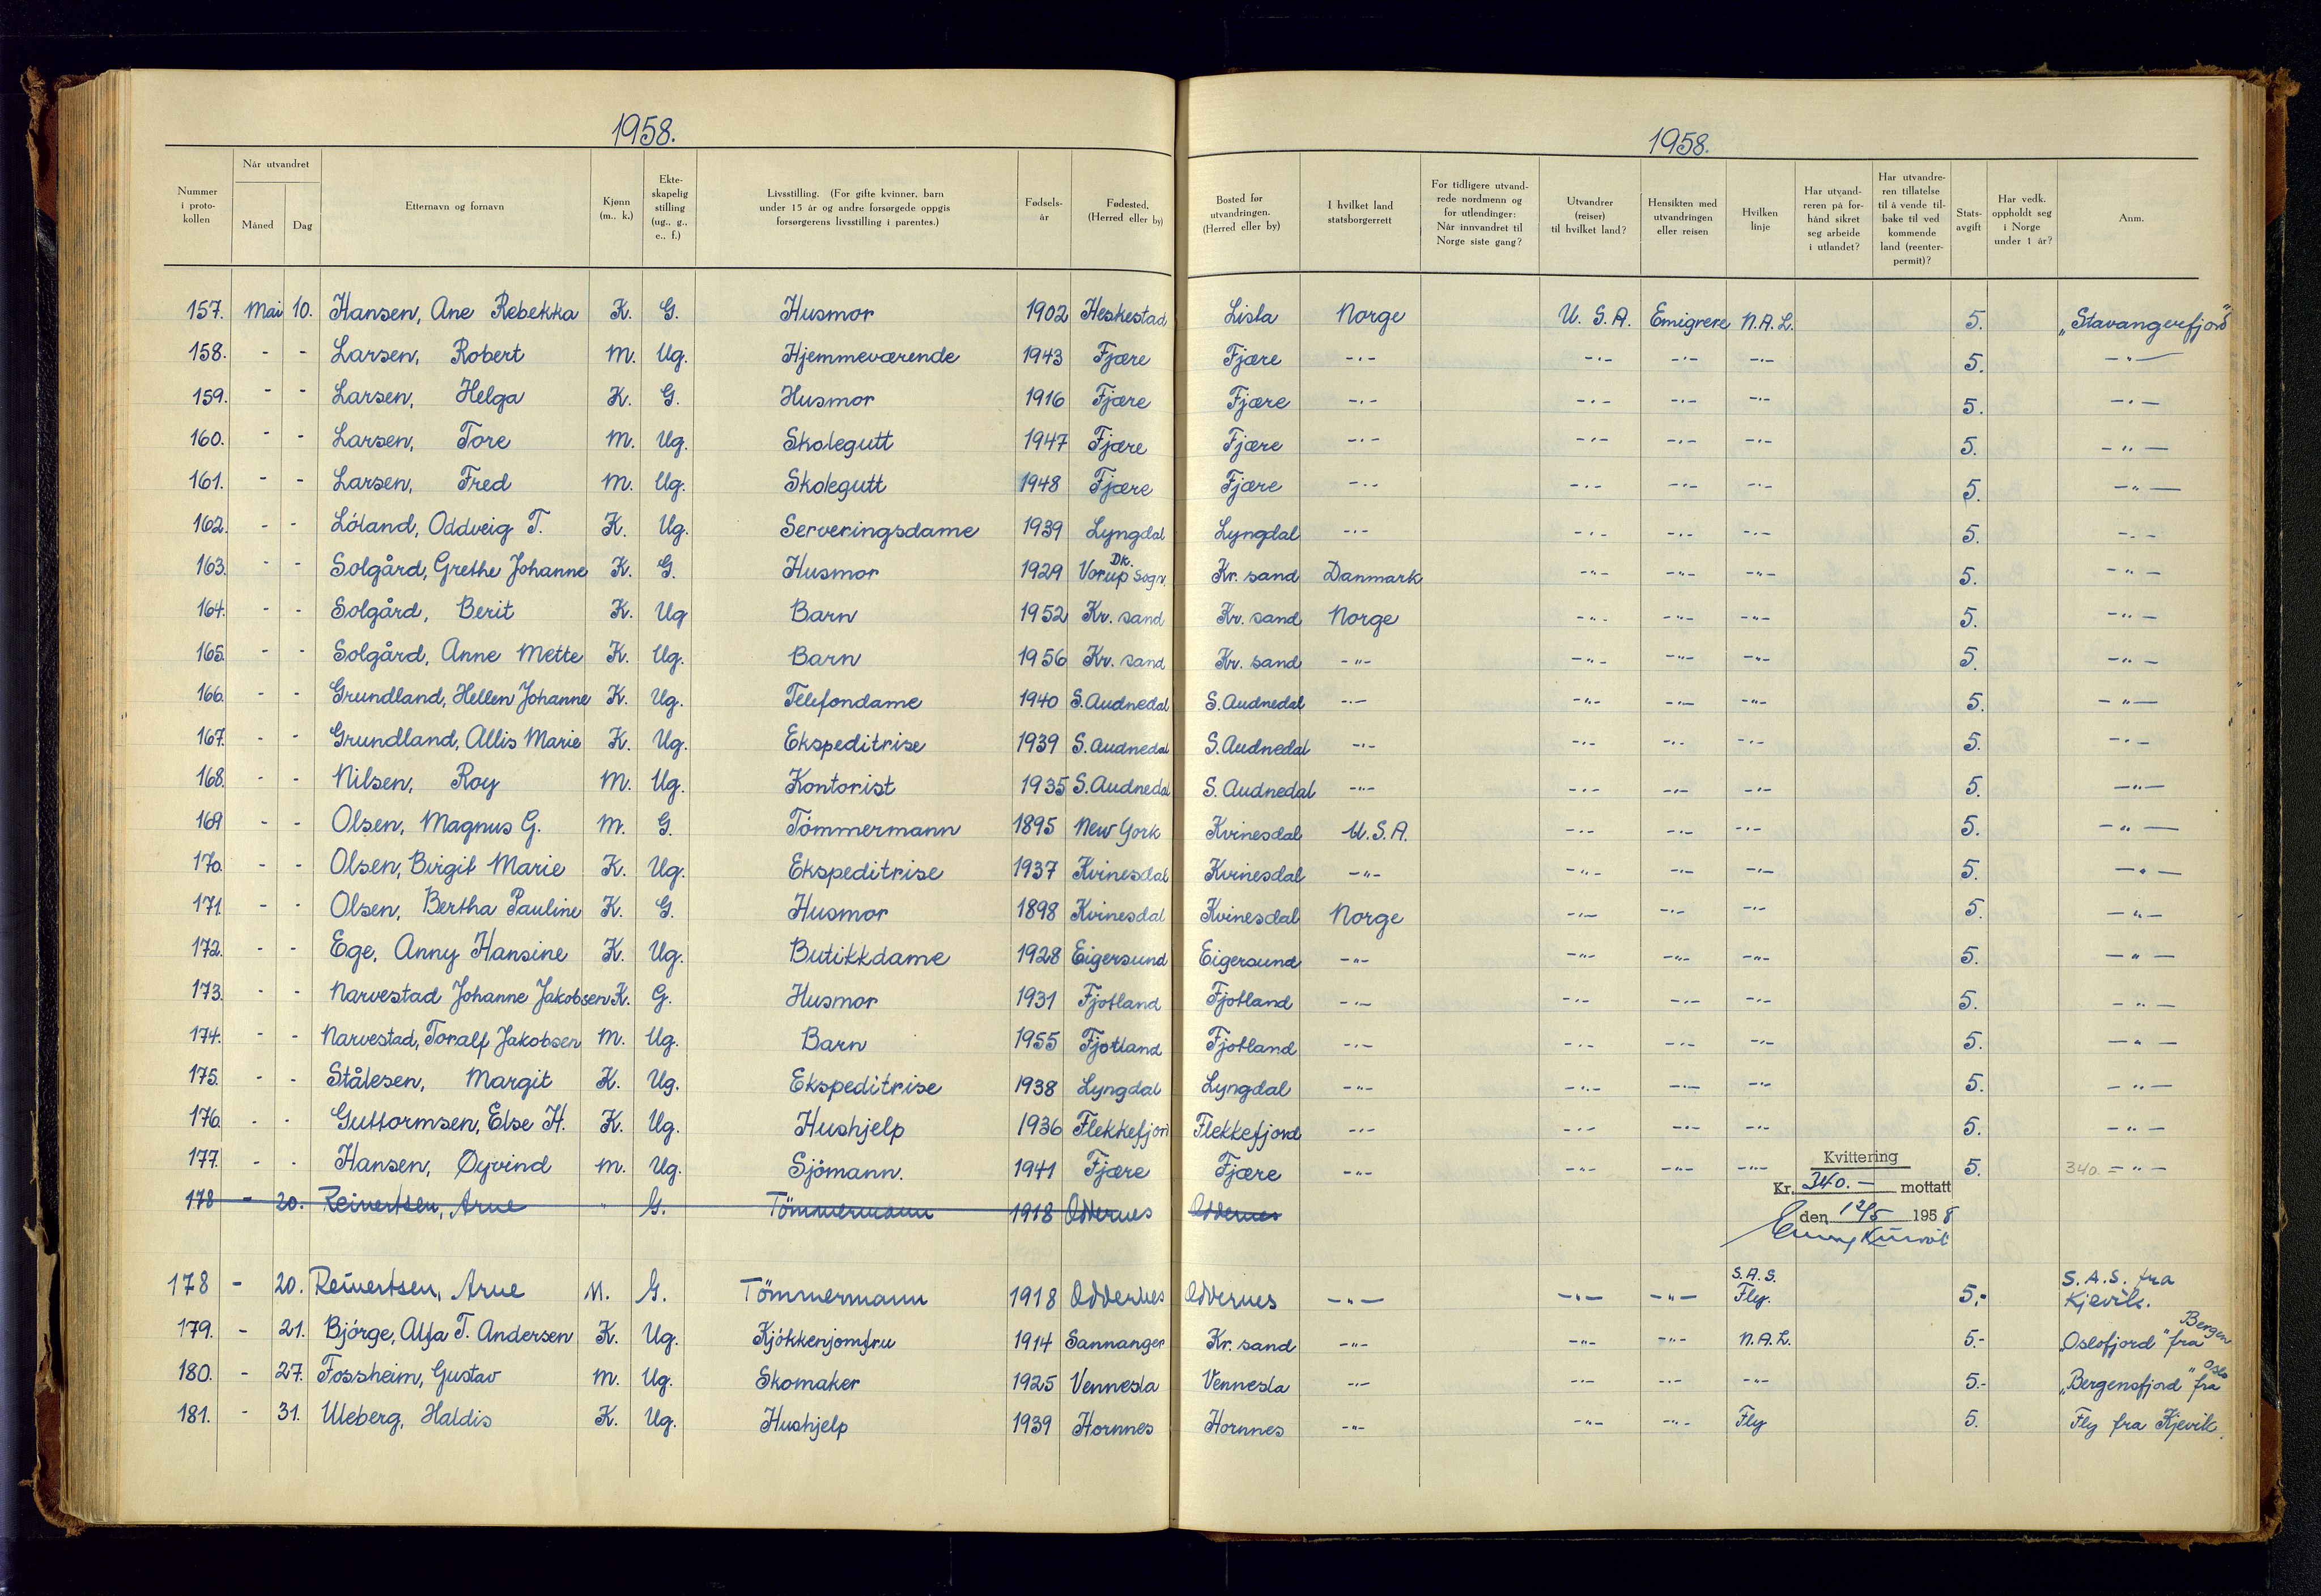 1958.
1958.
Nummer i proto-kollen | Når utvandret Måned Dag | Etternavn og fornavn | Kjønn (m., k.) | Ekte-skapelig stilling (ug., g., e., f.) | Livsstilling. (For gifte kvinner, barn under 15 år og andre forsørgede oppgis forsørgerens livsstilling i parentes.) | Fødsels-år | Fødested. (Herred eller by) | Bosted før utvandringen. (Herred eller by) | I hvilket land statsborgerrett | For tidligere utvand-rede nordmenn og for utlendinger: Når innvandret til Norge siste gang? | Utvandrer (reiser) til hvilket land? | Hensikten med utvandringen eller reisen | Hvilken linje | Har utvand-reren på for-hånd sikret seg arbeide i utlandet? | Har utvandre-ren tillatelse til å vende til-bake til ved kommende land (reenter-permit)? | Stats-avgift | Har vedk. oppholdt seg i Norge under 1 år? | Anm.
157. Mai 10. Hansen, Ane Rebekka K. G. Husmor 1902 Heskestad Lista Norge U.S.A. Emigrere N.A.L. 5. „Stavangerfjord"
158. - - Larsen, Robert M. Ug. Hjemmeværende 1943 Fjære Fjære -"- -"- -"- -"- 5. -"-
159. - - Larsen, Helga K. G. Husmor 1916 Fjære Fjære -"- -"- -"- -"- 5. -"-
160. - - Larsen, Tore M. Ug. Skolegutt 1947 Fjære Fjære -"- -"- -"- -"- 5. -"-
161. - - Larsen, Fred M. Ug. Skolegutt 1948 Fjære Fjære -"- -"- -"- -"- 5. -"-
162. - - Löland, Oddveig T. K. Ug. Serveringsdame 1939 Lyngdal Lyngdal -"- -"- -"- -"- 5. -"-
163. - - Solgård, Grethe Johanne K. G. Husmor 1929 Vorup sogn. Dk. Kr. sand Danmark -"- -"- -"- 5. -"-
164. - - Solgård, Berit K. Ug Barn 1952 Kr. sand Kr. sand Norge -"- -"- -"- 5. -"-
165. - - Solgård, Anne Mette K. Ug. Barn 1956 Kr. sand Kr. sand -"- -"- -"- -"- 5. -"-
166. - - Grundland, Hellen Johanne K. Ug. Telefondame 1940 S. Audnedal S. Audnedal -"- -"- -"- -"- 5. -"-
167. - - Grundland, Allis Marie K. Ug. Ekspeditrise 1939 S. Audnedal S. Audnedal -"- -"- -"- -"- 5. -"-
168. - - Nilsen, Roy M. Ug. Kontorist 1935 S. Audnedal S. Audnedal -"- -"- -"- -"- 5. -"-
169 - - Olsen, Magnus G. M. G. Tömmermann 1895 New York Kvinesdal U.S.A. -"- -"- -"- 5. -"-
170. - - Olsen, Birgit Marie K. Ug. Ekspeditrise 1937 Kvinesdal Kvinesdal -"- -"- -"- -"- 5. -"-
171. - - Olsen, Bertha Pauline K. G. Husmor 1898 Kvinesdal Kvinesdal Norge -"- -"- -"- 5. -"-
172. - - Ege, Anny Hansine K. Ug. Butikkdame 1928 Eigersund Eigersund -"- -"- -"- -"- 5. -"-
173. - - Narvestad Johanne Jakobsen K. G. Husmor 1931 Fjotland Fjotland -"- -"- -"- -"- 5. -"-
174. - - Narvestad, Toralf Jakobsen M. Ug. Barn 1955 Fjotland Fjotland -"- -"- -"- -"- 5. -"-
175. - - Stålesen, Margit K. Ug. Ekspeditrise 1938 Lyngdal Lyngdal -"- -"- -"- -"- 5. -"-
176. - - Guttormsen, Else H. K. Ug. Hushjelp 1936 Flekkefjord Flekkefjord -"- -"- -"- -"- 5. -"-
177. - - Hansen, Øyvind M. Ug. Sjömann. 1941 Fjære Fjære -"- -"- -"- -"- 5. 340.= -"-
Kvittering
Kr. 340.- mottatt
178 - 20. Reinertsen, Arne " G. Tömmermann 1918 Oddernes Oddernes
den 12/5 1958
178 - 20. Reinertsen, Arne M. G. Tömmermann 1918 Oddernes Oddernes -"- -"- -"- S.A.S. Fly. 5,- S.A.S. fra Kjevik.
179. - 21. Bjórge, Alfa T. Andersen K. Ug. Kjókkenjomfru 1914 Sannanger Kr. sand -"- -"- -"- N.A.L. 5.- „Oslofjord" fra Bergen
180. - 27. Fossheim, Gustav M. Ug. Skomaker 1925 Vennesla Vennesla -"- -"- -"- -"- 5.- „Bergensfjord" fra Oslo
181. - 31. Uleberg, Haldis K. Ug. Hushjelp 1939 Hornnes Hornnes -"- -"- -"- Fly 5. Fly fra Kjevik.